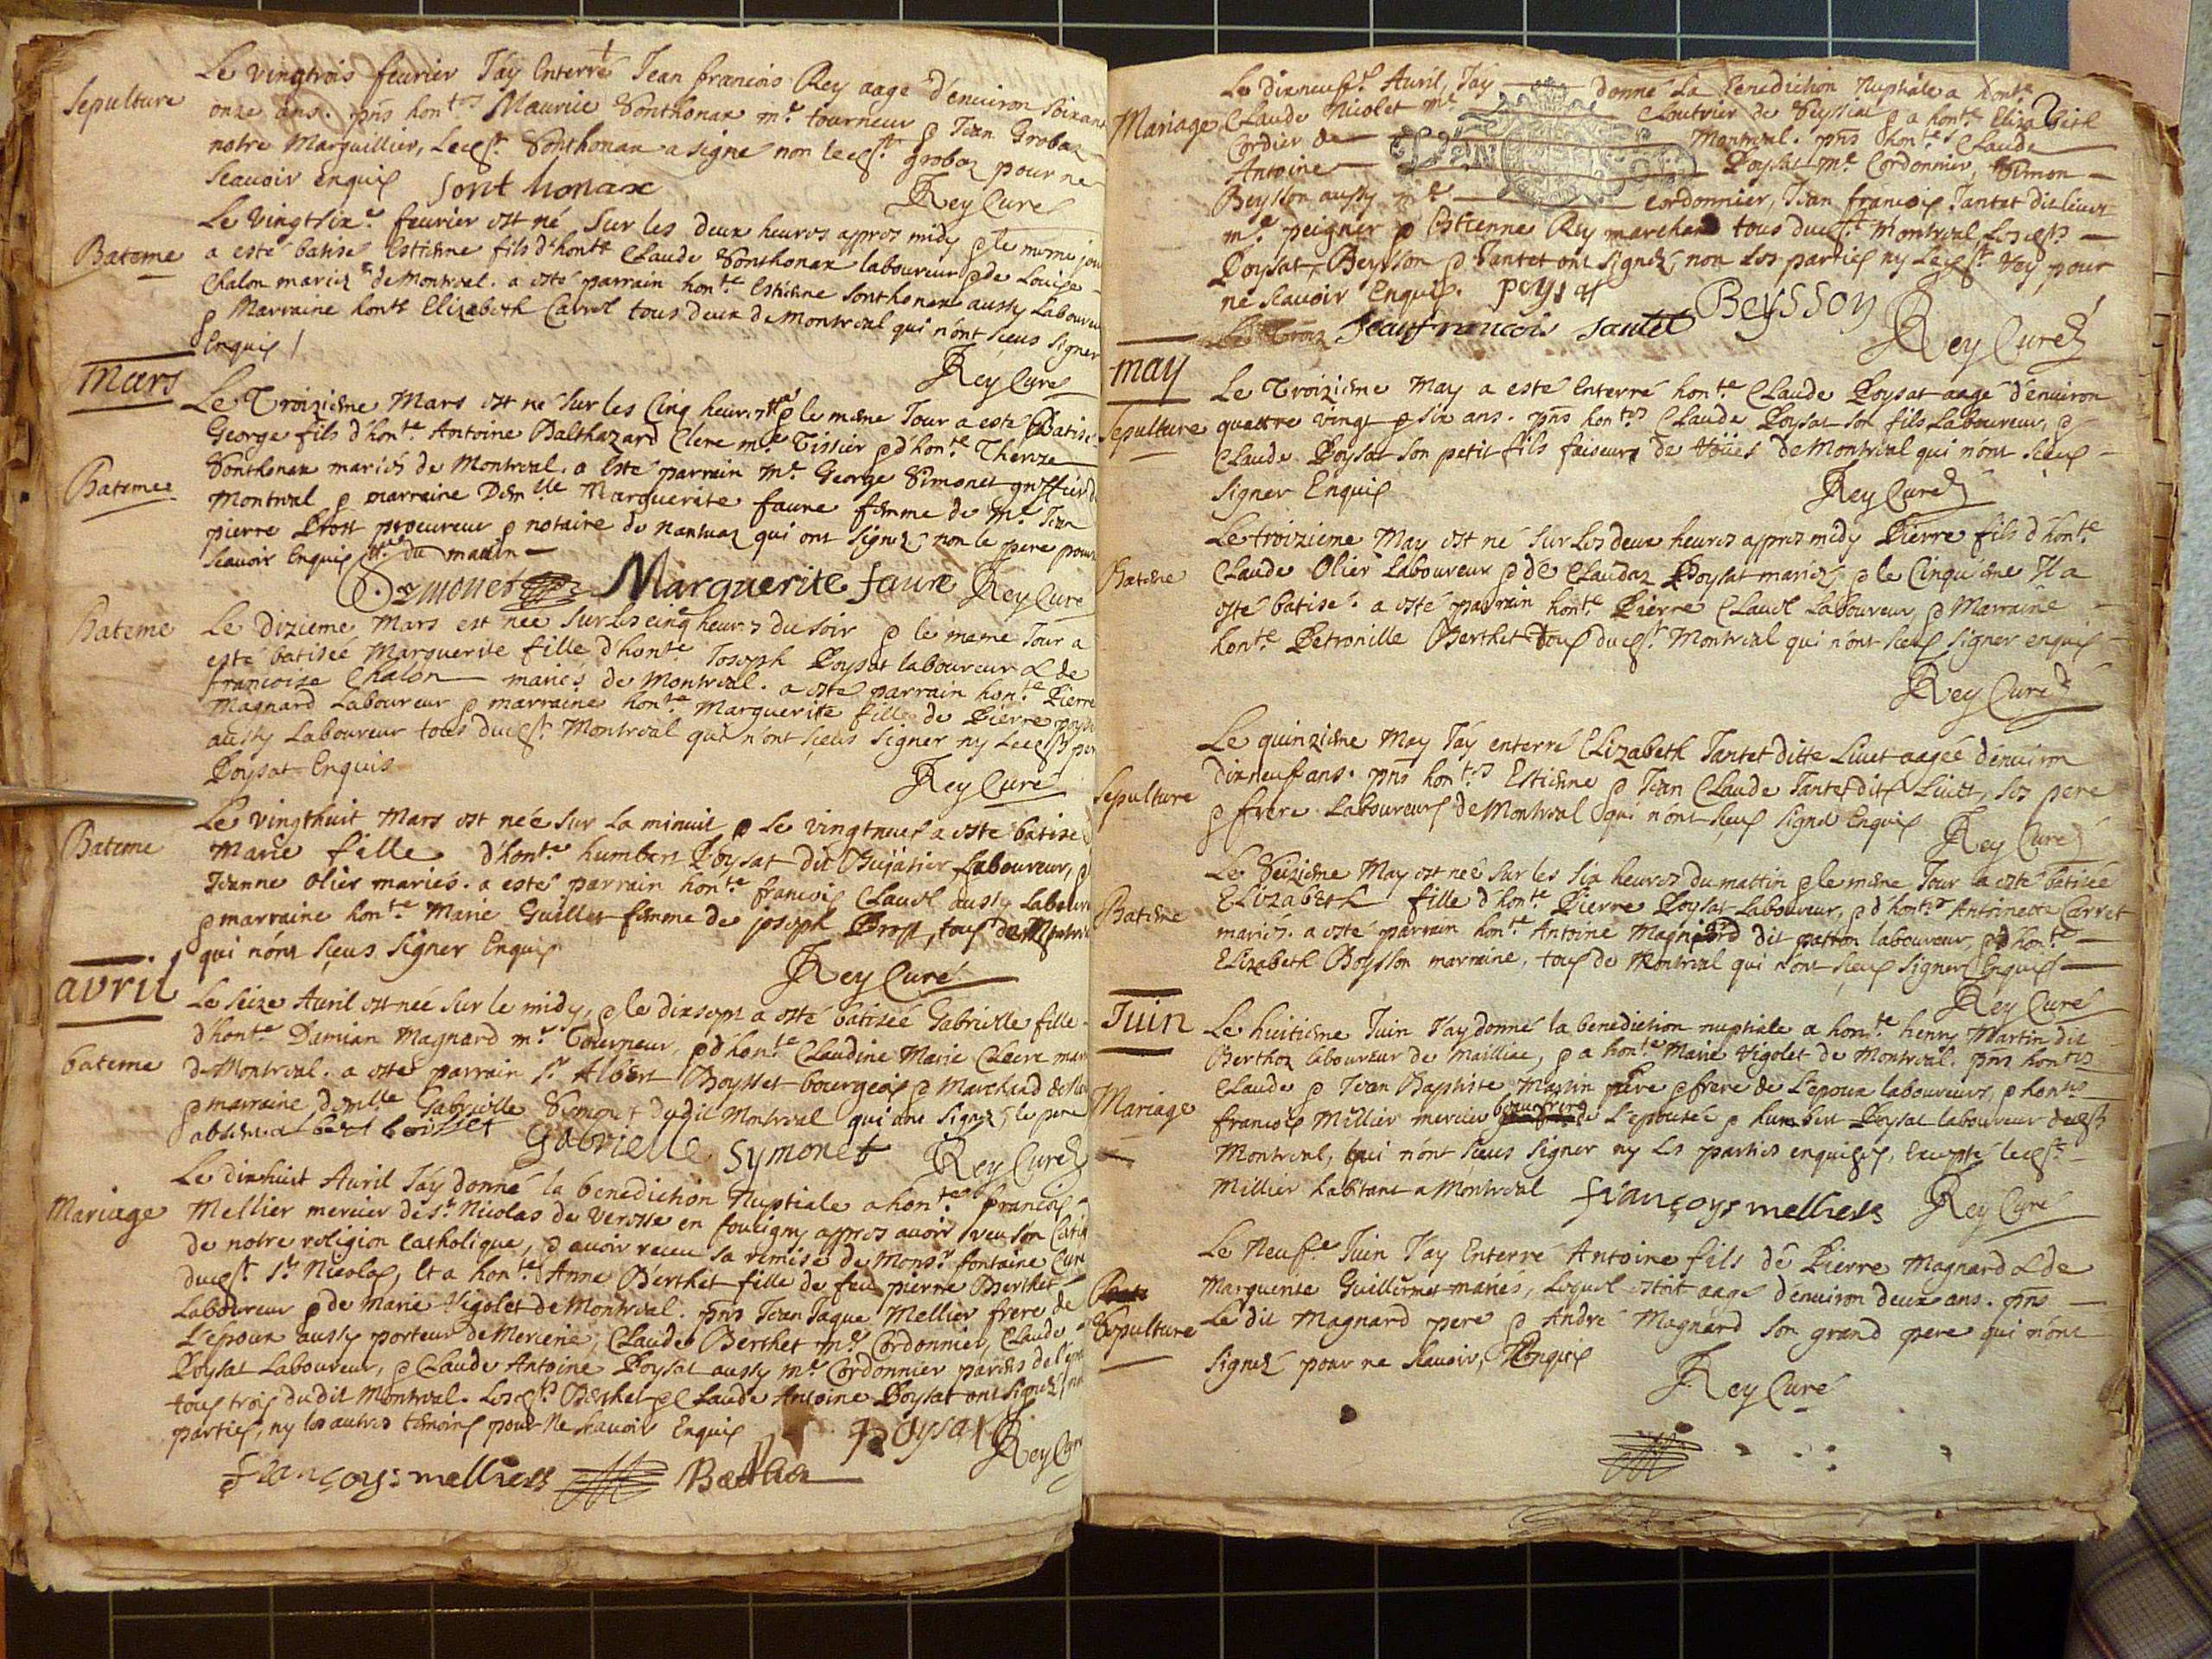 Sepulture
Le vingtrois feurier J'ay Enterré Jean francois Rey aagé d'enuiron soixante
onze ans. pns hon.tes Maurice Sonthonax m.e tourneur & Jean Grobaz
notre Marguillier, Led.t Sonthonax a signé non led.t Grobaz pour ne
scauoir enquis sont honax Rey Curé
Bateme
Le vingtsix.e feurier est né sur les deux heures appres midy & le meme jour
a esté batisé Estienne fils d'hon.te Claude Sonthonax laboureur & de Louise
Chalon mariez de Montreal. a esté parrain hon.te Estienne Sonthonax aussy Laboureur
& Marraine hon.te Elizabeth Carret tous deux de Montreal qui n'ont sceus signer
Enquis Rey Curé
Mars
Bateme
Le Troizieme Mars est né sur les Cinq heures & le mesme Jour a esté Batisé
George fils d'hon.te Antoine Balthazard Clerc m.e Tissier & d'hon.te Thereze
Sonthonax mariés de Montreal. a Esté parrain m.e George Simonet greffier de
Montreal & marraine Dem.lle Marguerite faure femme de M.e Jean
pierre Prost procureur & notaire de Nantuaz qui ont signez non le pere pour
scauoir Enquis du matin
Symonet Marguerite faure Rey Curé
Bateme
Le dizieme Mars est née sur les cinq heures du soir & le meme Jour a
esté batisée Marguerite fille d'hon.te Joseph Poysat laboureur & de
francoise Chalon mariés de Montreal. a esté parrain hon.te Pierre
Magnard Laboureur & marraine hon.te Marguerite fille de Pierre poysat
aussy Laboureur tous dud.t Montreal qui n'ont sceus signer ny led.t
Poysat Enquis Rey Curé
Bateme
Le vingthuit Mars est née sur la minuit & le vingtneuf a esté batisée
Marie fille d'hon.te humbert Poysat dit Bujatier Laboureur, &
Jeanne Olier mariés. a esté parrain hon.te francois Claudl aussy Laboureur
& marraine hon.te Marie Guillet femme de joseph Prost, tous de Montreal
qui n'ont sceus signer Enquis
Rey Curé
avril
bateme
Le seize Auril est née sur le midy, & le dixsept a esté batisée Gabrielle fille
d'hon.te Damian Magnard m.e Tourneur, & d'hon.te Claudine Marie Clerc
de Montreal. a esté parrain s.r Albert Boysset bourgeois & Marchand
& marraine dem.lle Gabrielle Simonet dudit Montreal qui ont signez, le pere
absent albert boisset Gabrielle Symonet Rey Curé
Mariage
Le dixhuit Auril J'ay donné la benediction Nuptiale a hon.te francois
Mellier mercier de s.t Nicolas de Verosse en foucigny appres auoir veu son
de notre religion Catholique, & auoir receu sa remise de Mons.r fontaine Curé
dud.t s.t Nicolas, Et a hon.te Anne Berthet fille de feu pierre Berthet
Laboureur & de Marie Vigolet de Montreal. pns Jean Jaque Mellier frere de
L'epoux aussy porteur de Mercerie, Claude Berthet m.e Cordonnier, Claude
Poysat Laboureur, & Claude Antoine Poysat aussy m.e Cordonnier
tous trois dudit Montreal. Lesd.ts Berthet & Claude Antoine Poysat ont signez
parties, ny les autres temoins pour Ne scauoir Enquis poysat
françoys melliers Berthet Rey Curé
Mariage
Le dixneuf.e Auril, J'ay donné La Benediction Nuptiale a hon.te
Claude Nicolet m.e Cloutrier de Seyssiat & a hon.te Elizabeth
Cordier de Montreal. pns hon.tes Claude
Antoine Poysat m.e Cordonnier, Simon
Beysson aussy m.e Cordonnier, Jean francois Jantet dit Liuet
m.e peigner & Estienne Rey marchand tous dud.t Montreal Lesd.ts
Poysat, Beysson & Jantet ont signez, non les parties ny led.t Rey, pour
ne scauoir Enquis. poysat
Jeanfrancois Jantet Beysson Rey Curé
may
Sepulture
Le Troizieme May a esté Enterré hon.te Claude Poysat aagé d'enuiron
quattre vingt & six ans. pns hon.tes Claude Poysat son fils Laboureur, &
Claude Poysat son petit fils faiseur de de Montreal qui n'ont sceus
signer Enquis Rey Curé
Bateme
Le troizieme May est né sur les deux heures appres midy Pierre fils d'hon.te
Claude Olier Laboureur & de Claudaz Poysat mariez, & le Cinquieme Il a
esté batisé. a esté parrain hon.te Pierre Claudl Laboureur & Marraine
hon.te Petronille Berthet tous dud.t Montreal qui n'ont sceus signer enquis
Rey Curé
Sepulture
Le quinzieme May J'ay enterré Elizabeth Jantet ditte Liuet aagée d'enuiron
dixneuf ans. pns hon.tes Estienne & Jean Claude Jantet dit Liuet, ses pere
& frere Laboureurs de Montreal qui n'ont sceus signé Enquis Rey Curé
Bateme
Le Seizieme May est née sur les six heures du mattin & le mesme Jour a esté batisée
Elizabeth fille d'hon.te Pierre Poysat Laboureur, & d'hon.te Antoinette Carret
mariés. a esté parrain hon.te Antoine Magniard dit patron laboureur, & d'hon.te
Elizabeth Boysson marraine, tous de Montreal qui n'ont sceus signer Enquis
Rey Curé
Juin
Mariage
Le huitieme Juin J'ay donné la benediction nuptiale a hon.te henry Martin dit
Berthoz laboureur de Mailliac, & a hon.te Marie Vigolet de Montreal. pns hon.tes
Claude & Jean Baptiste Martin pere & frere de L'epoux laboureurs, & hon.tes
francois Millier mercier beaufrere de L'epousée & humbert Poysat laboureur dud.t
Montreal, qui n'ont sceus signer ny Les parties enquises, Excepté led.t
Millier habitant a Montreal françoys melliers Rey Curé
Sepulture
Le Neuf.e Juin J'ay Enterré Antoine fils de Pierre Magnard & de
Marguerite Guillermet mariés, Lequel estoit aagé d'enuiron deux ans. pns
Le dit Magnard pere & André Magnard son grand pere qui n'ont
signez pour ne scauoir, Enquis
Rey Curé